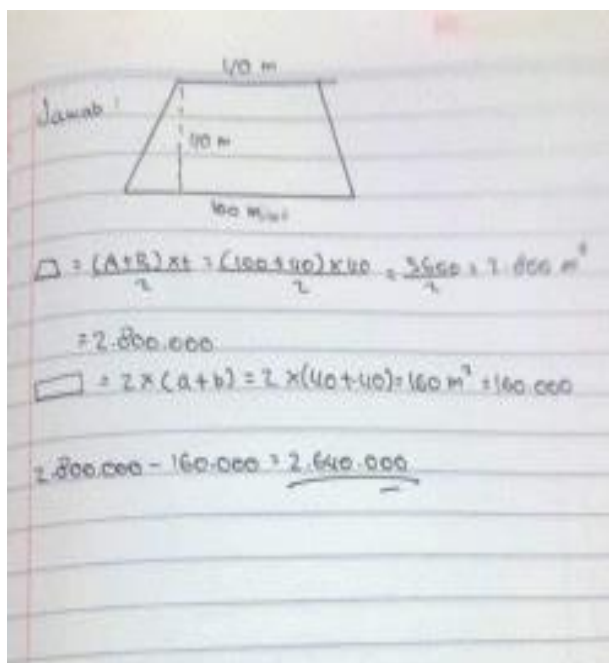 40 m
Jawab :
40 m
100 m
= (A+B) x t / 2 = (100 + 40) x 40 / 2 = 5600 / 2 = 2.800 m²
= 2.800.000
= 2 x (a+b) = 2 x (40+40) = 160 m² = 160.000
2.800.000 - 160.000 = 2.640.000